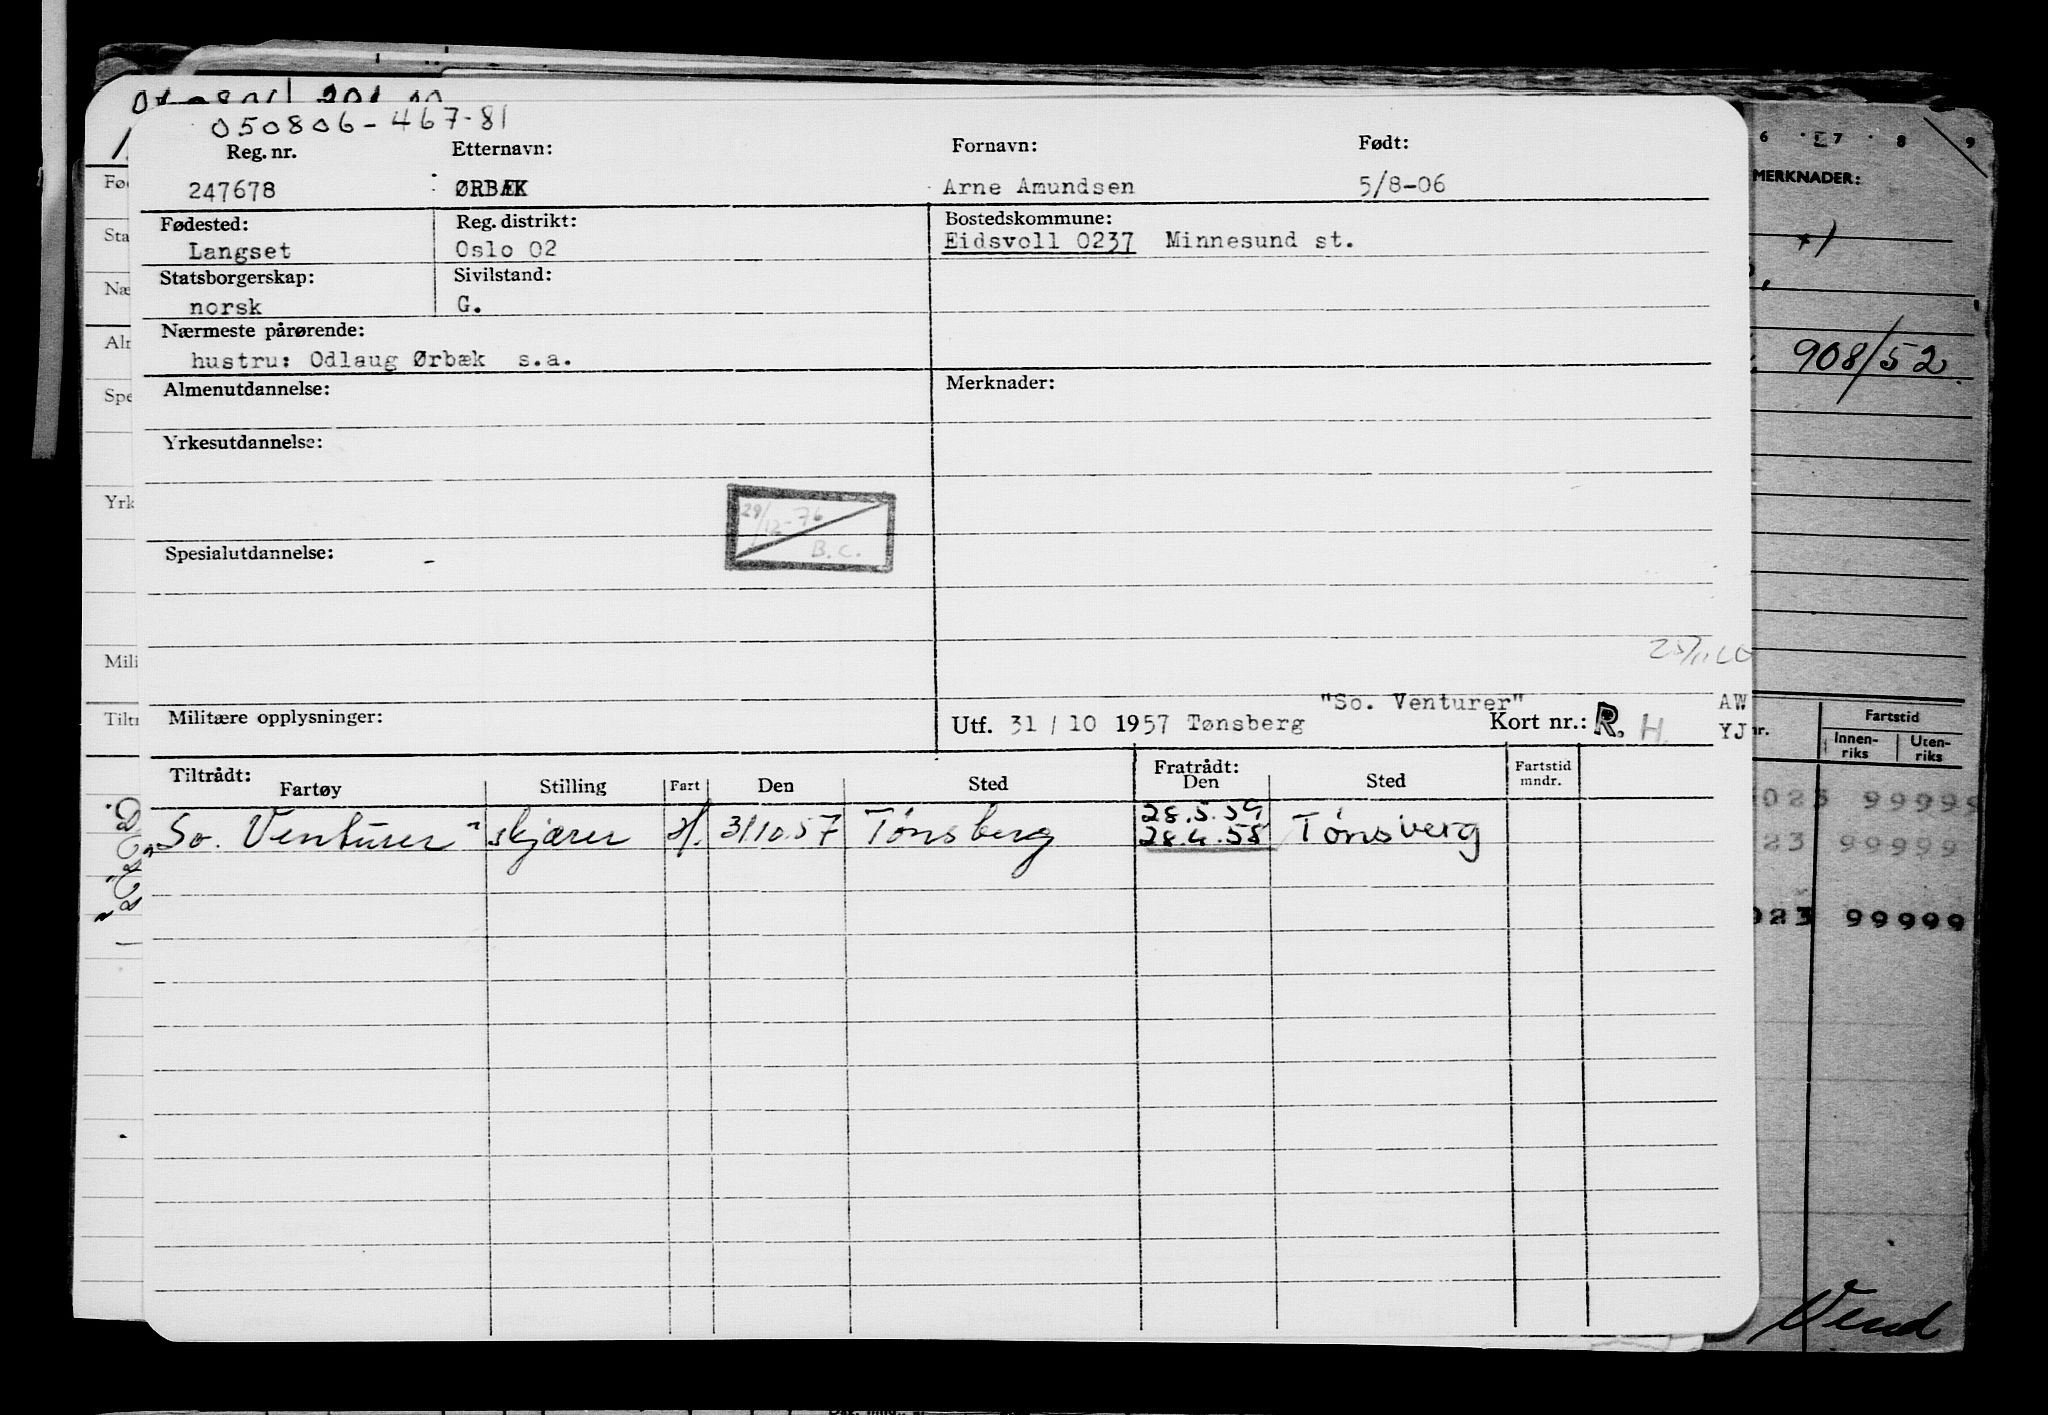 050806-467-81
Reg. nr. Etternavn: Fornavn: Født:
247678 ØRBÆK Arne Amundsen 5/8-06
Fødested: Reg. distrikt: Bostedskommune:
Langset Oslo 02 Eidsvoll 0237 Minnesund st.
Statsborgerskap: Sivilstand:
norsk G.
Nærmeste pårørende:
hustru: Odlaug Ørbæk s.a.
Almenutdannelse: Merknader:
Yrkesutdannelse:
29/12-76
B.C.
Spesialutdannelse:
"So. Venturer" AW
Militære opplysninger: Utf. 31/10 1957 Tønsberg Kort nr.: R. H. YJ
Tiltrådt: Fratrådt: Fartstid
Fartøy Stilling Fart Den Sted Den Sted mndr.
28.5.59
"So. Venturer" skjærer H. 31.10.57 Tønsberg 28.4.58 Tønsverg
6 7 8 9
MERKNADER:
908/52
Fartstid
Innen- Uten-
riks riks
99999
23 99999
023 99999
Vend
Fø
Sta
Næ
Alm
Spe
Yrk
Mili
Tiltr